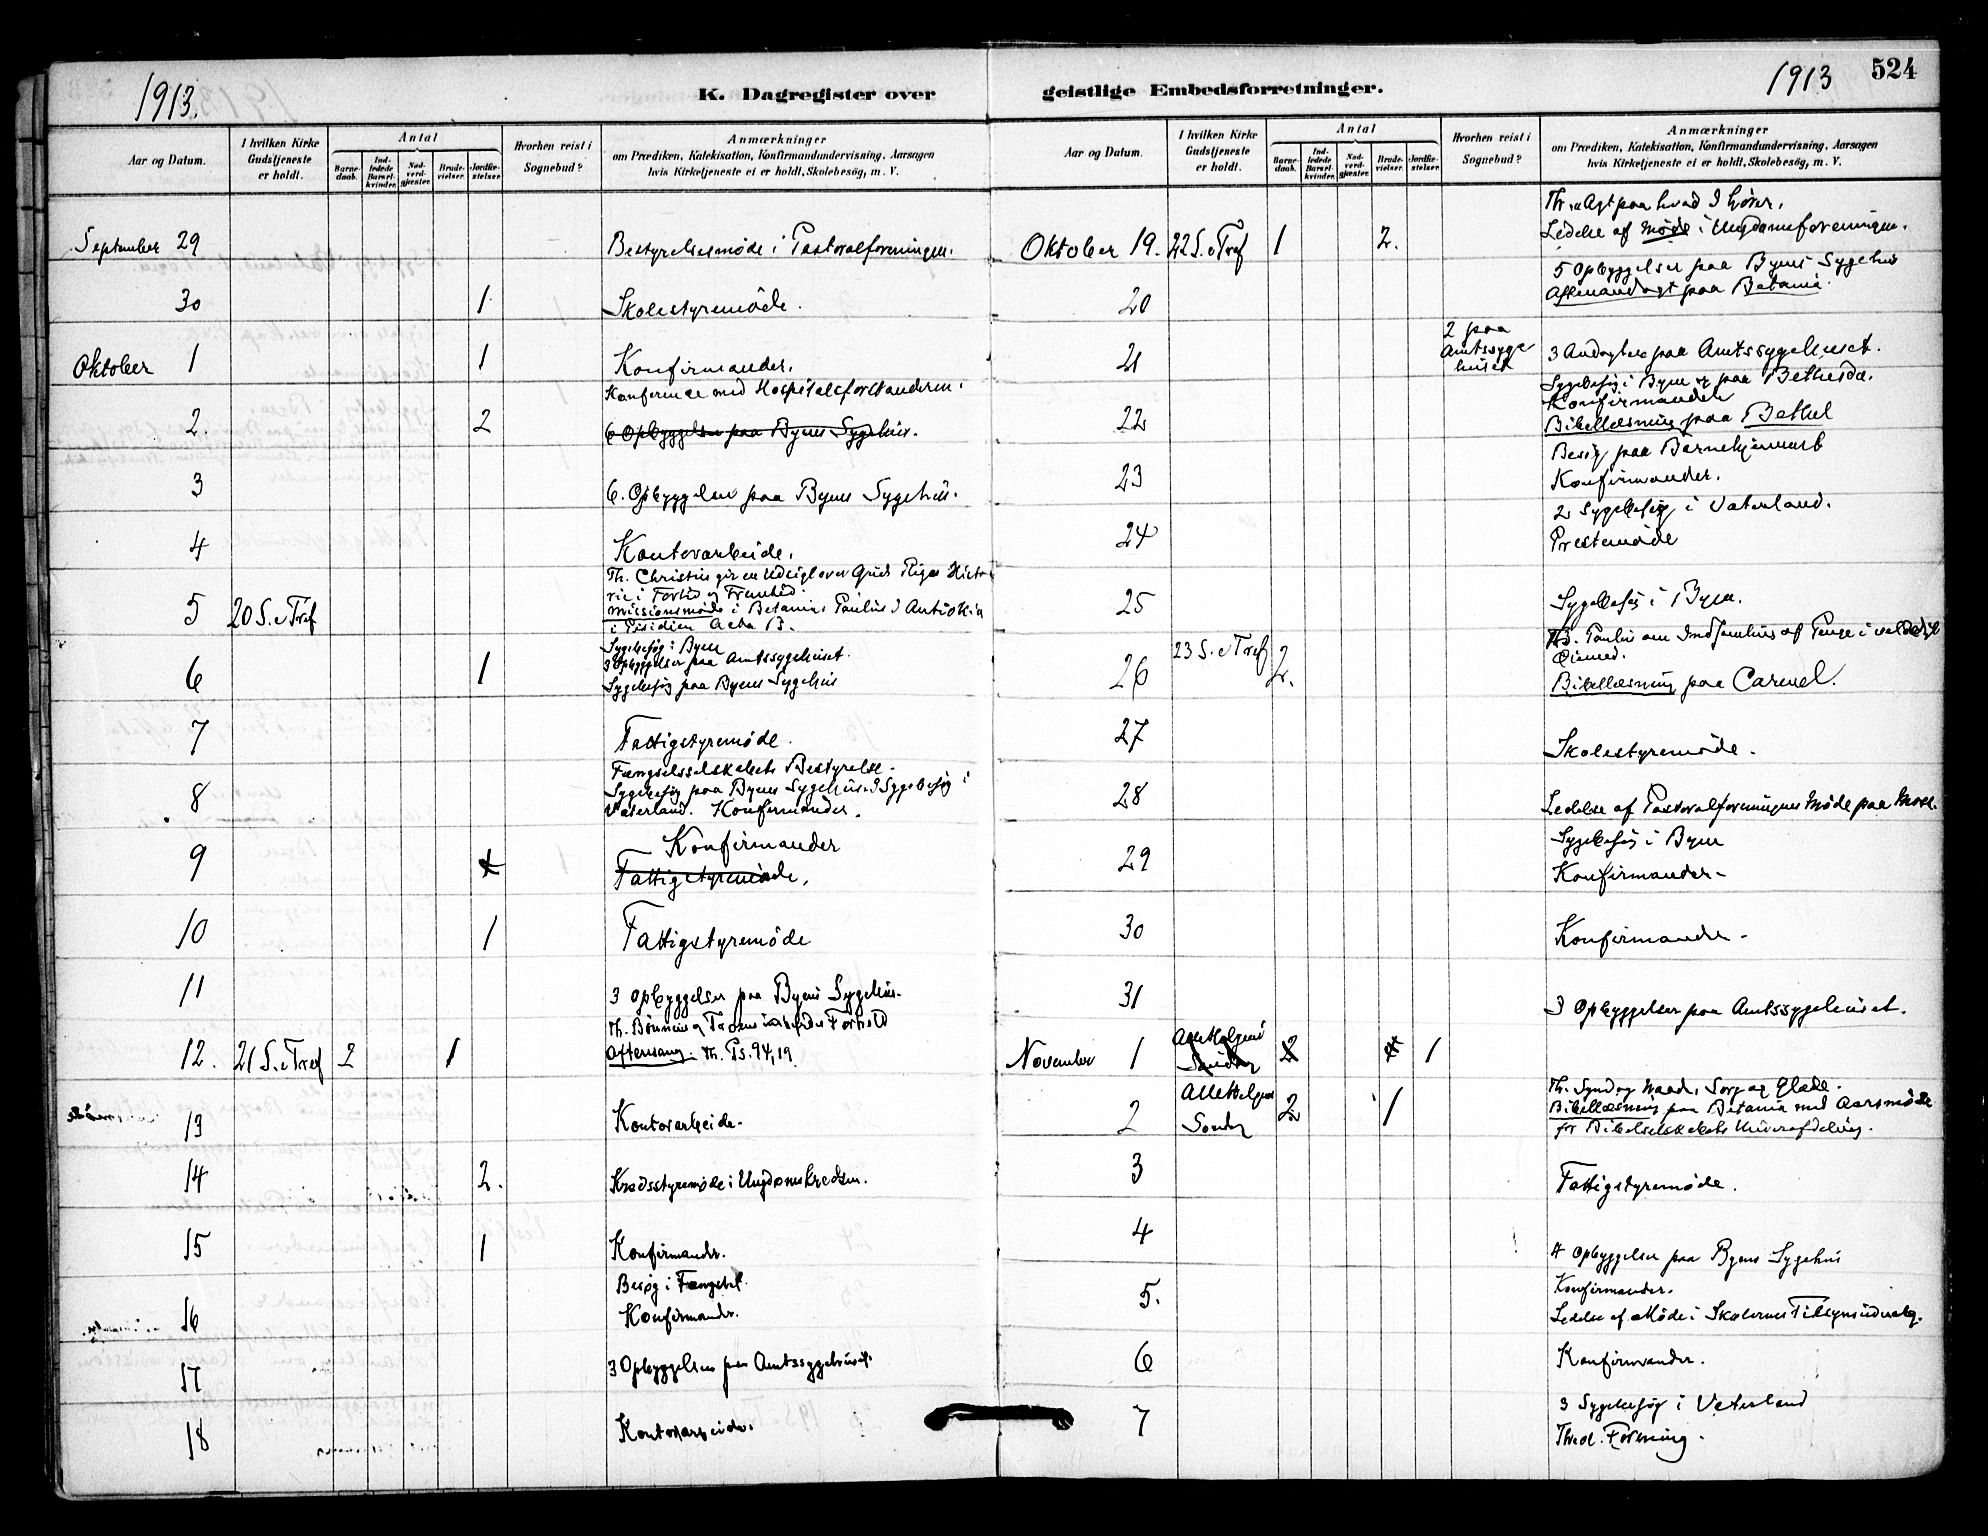 1913.
K. Dagregister over
Aar og Datum.
I hvilken Kirke
Gudstjeneste
er holdt.
Antal
Barne-
daab.
Ind-
ledede
Barsel-
kvinder.
Nad-
verd-
gjæster.
Brude-
vielser.
Jordfæ-
stelser.
Hvorhen reist i
Sognebud?
Anmærkninger
om Prædiken, Katekisation, Konfirmandundervisning, Aarsagen
hvis Kirketjeneste ei er holdt, Skolebesög, m. V.
September 29 Bestyrelsesmøde i Pastoralforeningen.
30 1 Skolestyremøde.
Oktober 1 1 Konfirmander.
Konference med Hospitalsforstanderen.
2. 2 6 Opbyggelser paa Byens Sygehus.
3 6. Opbyggelser paa Byens Sygehus.
4 Kontorarbeide.
Th. Christus gir en Udsigt over Guds Riges Histo-
rie i Fortid og Fremtid.
5 20 S. e Tref Missionsmøde i Betania: Paulus I Antiokia
i Pisidien Acta 13.
Sygebesøg i Byen
3 Opbyggelser paa Amtssygehuset.
6 1 Sygebesøg paa Byens Sygehus
7 Fattigstyremøde.
Fængselsselskabets Bestyrelse.
8 Sygebesøg paa Byens Sygehus. Sygebesøg i
Vaterland. Konfirmander.
Konfirmander
9 Fattigstyremøde.
10 1 Fattigstyremøde
11 3 Opbyggelser paa Byens Sygehus.
Th. Bønnens og Troens Forhold
12. 21 S. e Tref 2 1 Aftensang. Th. Ps. 94,19
13 Kontorarbeide.
14 2. Kredsstyremøde i Ungdomskredsen.
15 1 Konfirmander.
Besøg i Fængslet.
16 Konfirmander.
17 3 Opbyggelser paa Amtssygehuset.
18 Kontorarbeide.
1913 524
geistlige Embedsforretninger.
Aar og Datum.
I hvilken Kirke
Gudstjeneste
er holdt.
Antal
Barne-
daab.
Ind-
ledede
Barsel-
kvinder.
Nad-
verd-
gjæster.
Brude-
vielser.
Jordfæ-
stelser.
Hvorhen reist i
Sognebud?
Anmærkninger
om Prædiken, Katekisation, Konfirmandundervisning, Aarsagen
hvis Kirketjeneste ei er holdt, Skolebesög, m. V.
Th. Agt paa hvad I hører.
Oktober 19. 22 S. e Tref 1 2. Ledelse af Møde i Ungdomsforeningen.
5 Opbyggelser paa Byens Sygehus
20 Aftenandagt paa Betania.
21 2 paa
Amtssyge
huset
3 Andagter paa Amtssygehuset.
Sygebesøg i Byen og paa Bethesda.
Konfirmander
22 Bibellæsning paa Bethel
Besøg paa Barnehjemmet
23 Konfirmander.
2 Sygebesøg i Vaterland.
24 Prestemøde
25 Sygebesøg i Byen.
Th. Paulus om Indsamling af Penge i
Øiemed.
26 23 S. e Tref 2. Bibellæsning paa Carmel.
27 Skolestyremøde.
28 Ledelse af Pastoralforeningens Møde paa Moss.
Sygebesøg i Byen
29 Konfirmander
30 Konfirmander
31 3 Opbyggelser paa Amtssygehuset.
November 1 Alle Helgens
Søndag 2 1
Th. Synd og Naade, Sorg og Glæde.
2 Alle Helgens
Søndag 2 1 Bibellæsning paa Betania med Aarsmøde
for Bibelselskabets Underafdeling.
3 Fattigstyremøde.
4 4 Opbyggelser paa Byens Sygehus
Konfirmander.
5. Ledelse af Møde i Skolernes Tilsynsudvalg.
6 Konfirmander.
3 Sygebesøg i Vaterland
7 Theol. Forening.